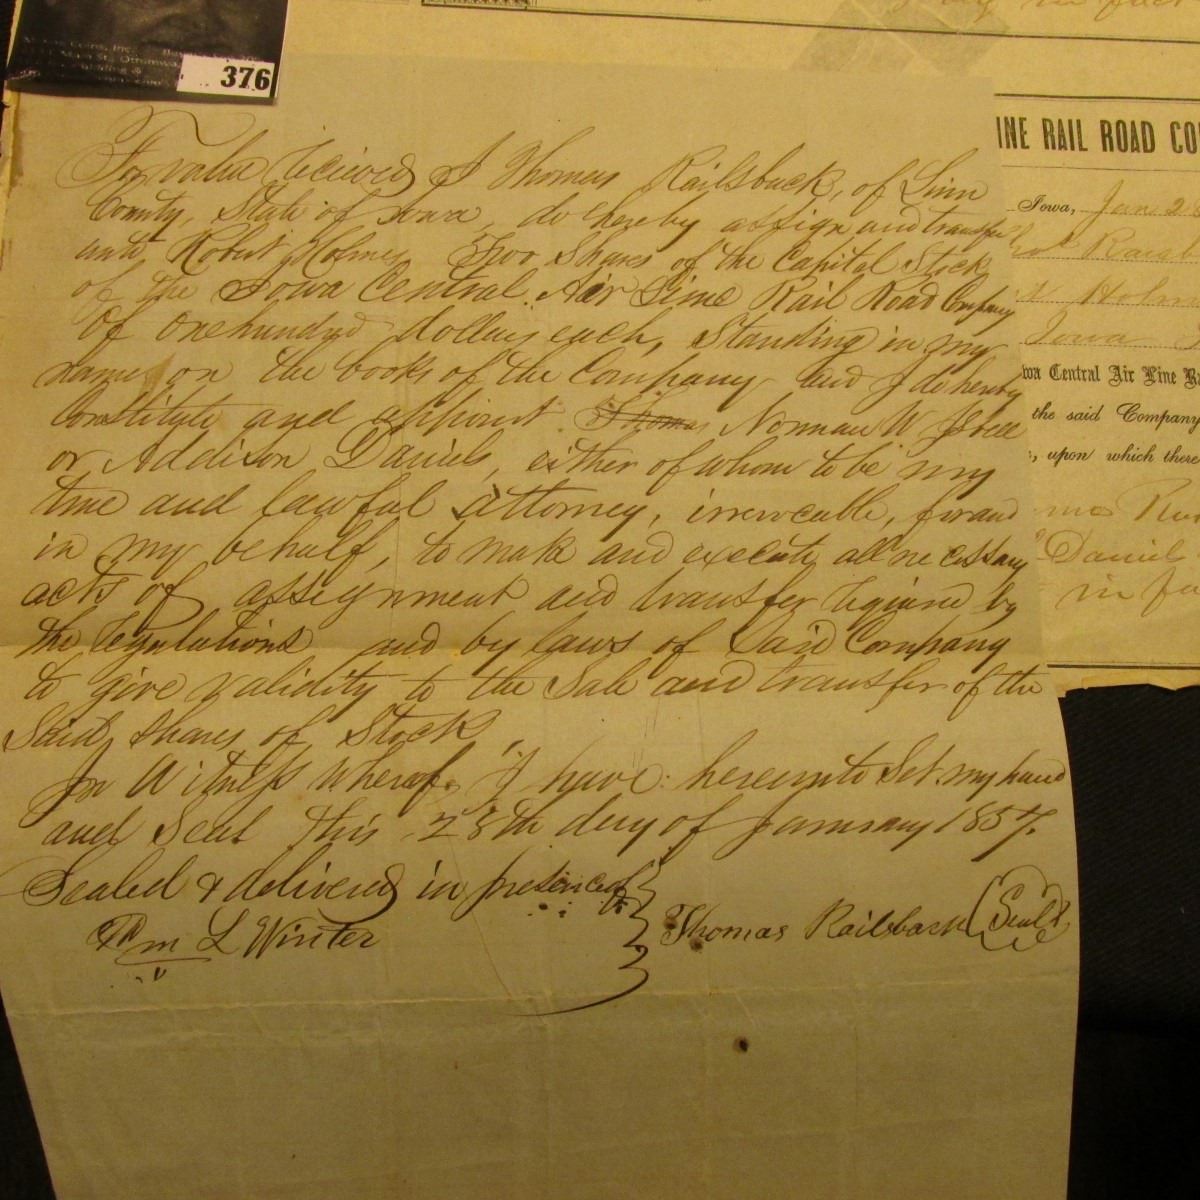 376
For value recieved I Thomas Railsback, of Linn
County, State of Iowa, do hereby assign and transfer
unto Robert Holmes Two Shares of the Capital Stock
of the Iowa Central Air Line Rail Road Company
of one hundred dollars each, Standing in my
name, on the books of the Company and I do hereby
Constitute and appoint Thomas Norman W Isbell
or Addison Daniels, either of whom to be my
true and lawful attorney, irrevocable, for and
in my behalf, to make and execute all necessary
acts of assignment and transfer required by
the regulations and by laws of Said Company
to give validity to the Sale and transfer of the
Said Shares of Stock,
In Witness whereof, I have hereunto Set my hand
and Seal this 28th day of January 1857.
Sealed & delivered in presence of
Wm L Winter
Thomas Railsback
Seal
INE RAIL ROAD CO
Iowa, Jan 2
Holm
Iowa
wa Central Air Line R
the said Company
, upon which there
Daniel
in fa